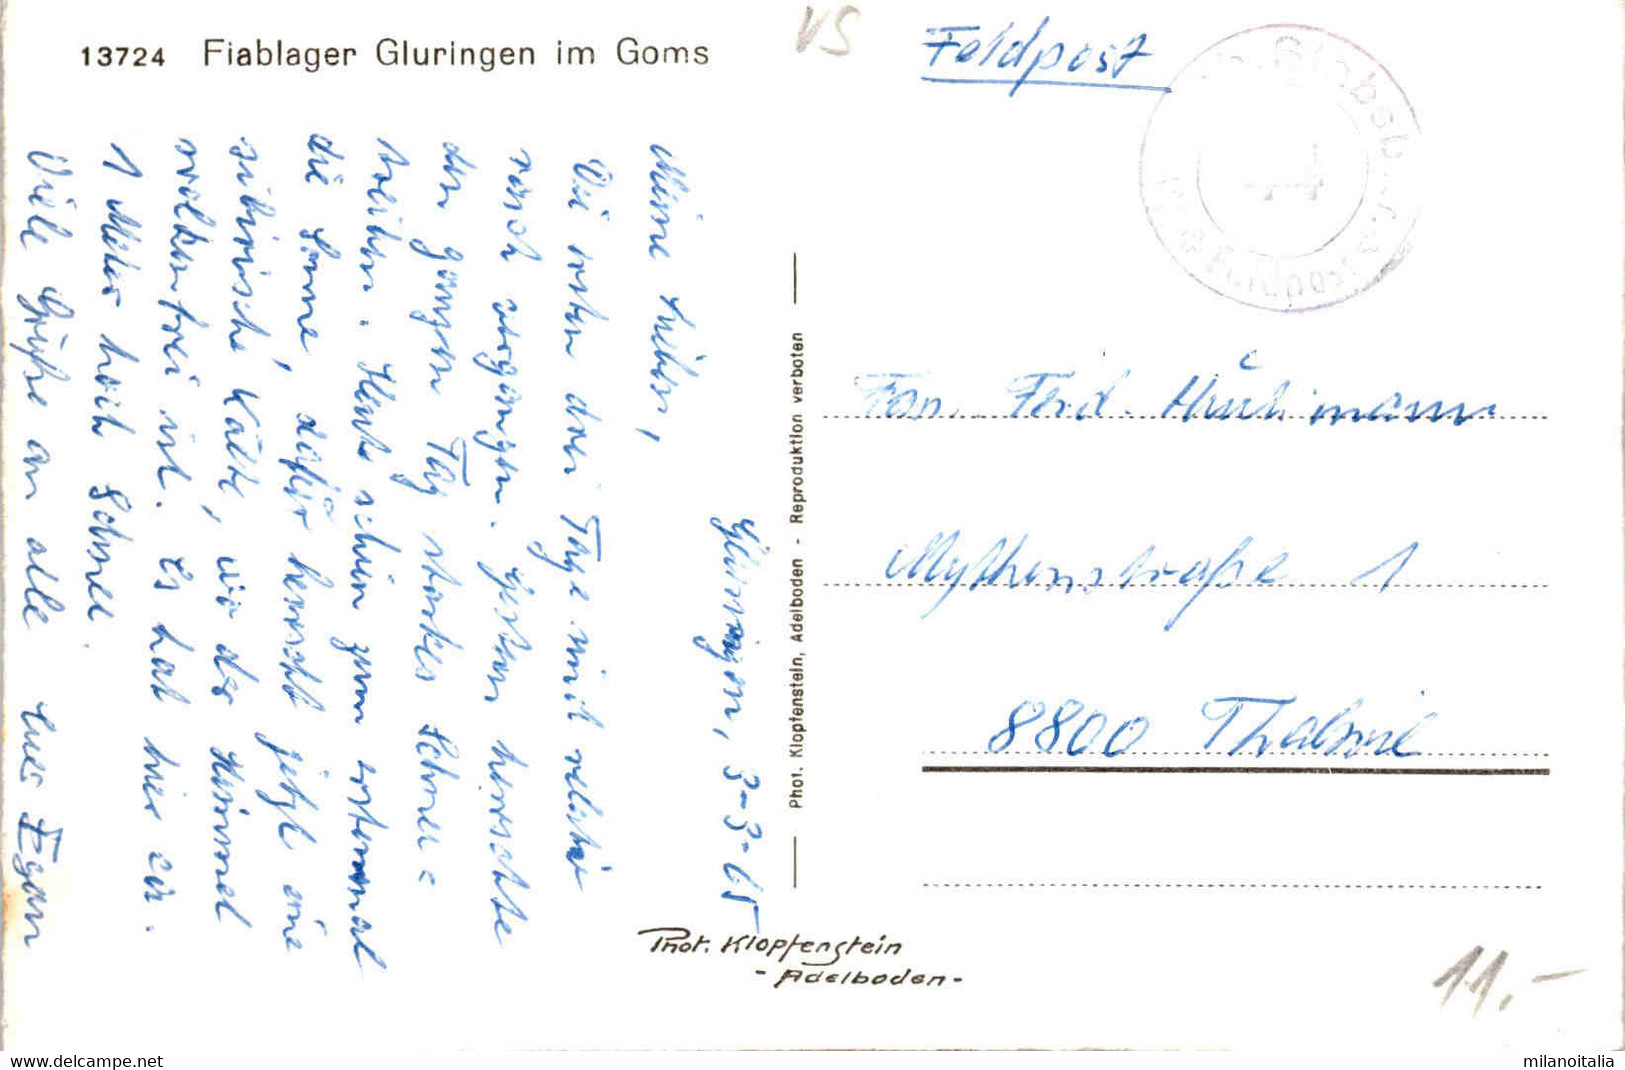 13724 Fiablager Gluringen im Goms
VS
Feldpost
Gluringen, 3-3-65
Meine Lieben,
Die ersten drei Tage sind relativ
rasch vergangen. Gestern herrschte
den ganzen Tag starkes Schnee=
treiben. Heute schien zum erstenmal
die Sonne, dafür herrscht jetzt eine
sibirische Kälte, wo der Himmel
wolkenfrei ist. Es hat hier ca.
1 Meter hoch Schnee.
Viele Grüße an alle Euer Egon
Phot. Klopfenstein, Adelboden - Reproduktion verboten
Fam. Ferd.
Mythenstraße 1
8800 Thalwil
Phot. Klopfenstein
- Adelboden -
11.-
https://www.delcampe.net
milanoitalia